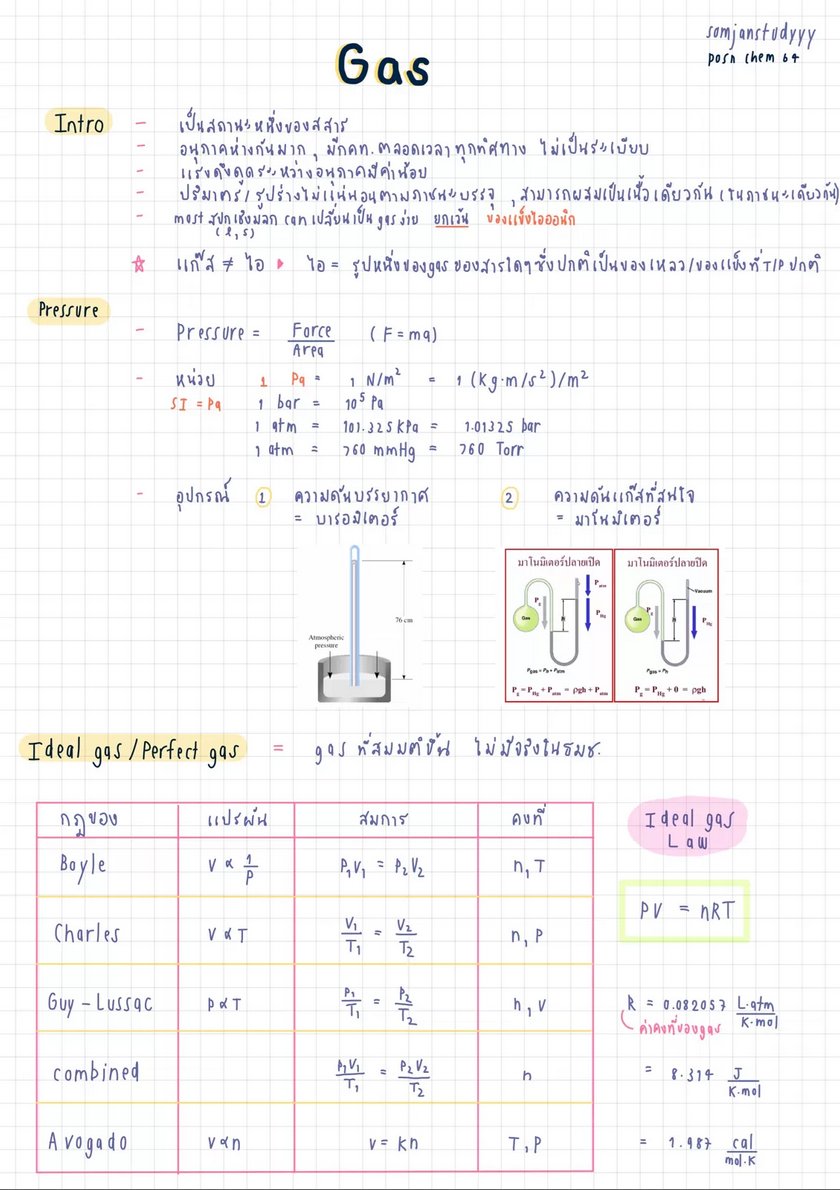 somjanstudyyy
posn chem 64
Gas
Intro
- เป็นสถานะหนึ่งของสสาร
- อนุภาคห่างกันมาก , มีกคท. ตลอดเวลา ทุกทิศทาง ไม่เป็นระเบียบ
- แรงดึงดูดระหว่างอนุภาคมีค่าน้อย
- ปริมาตร/รูปร่างไม่แน่นอนตามภาชนะบรรจุ , สามารถผสมเป็นเนื้อเดียวกัน (ในภาชนะเดียวกัน)
- most สปกเชิงมลก can เปลี่ยนเป็น gas ง่าย ยกเว้น ของแข็งไอออนิก
(l, s)
☆ แก๊ส ≠ ไอ ▸ ไอ = รูปหนึ่งของgas ของสารใดๆซึ่งปกติเป็นของเหลว/ของแข็งที่T/Pปกติ
Pressure
- Pressure = Force/Area (F = ma)
- หน่วย 1 Pa = 1 N/m² = 1 (Kg·m/s²)/m²
SI = Pa 1 bar = 10⁵ Pa
1 atm = 101.325 kPa = 1.01325 bar
1 atm = 760 mmHg = 760 Torr
- อุปกรณ์ 1 ความดันบรรยากาศ 2 ความดันแก๊สที่สนใจ
= บารอมิเตอร์ = มาโนมิเตอร์
76 cm
Atmospheric
pressure
มาโนมิเตอร์ปลายเปิด
P atm
P g
P Hg
Gas
h
P gas = P h + P atm
P g = P Hg + P atm = ρgh + P atm
มาโนมิเตอร์ปลายปิด
Vacuum
P g
P Hg
Gas
h
P gas = P h
P g = P Hg + 0 = ρgh
Ideal gas/Perfect gas = gas ที่สมมติขึ้น ไม่มีจริงในธมช.
กฎของ แปรผัน สมการ คงที่
Boyle V ∝ 1/P P₁V₁ = P₂V₂ n, T
Charles V ∝ T V₁/T₁ = V₂/T₂ n, P
Guy-Lussac P ∝ T P₁/T₁ = P₂/T₂ n, V
combined P₁V₁/T₁ = P₂V₂/T₂ n
Avogado V ∝ n V = Kn T, P
Ideal gas
Law
PV = nRT
R = 0.082057 L·atm/K·mol
ค่าคงที่ของgas
= 8.314 J/K·mol
= 1.987 cal/mol·K